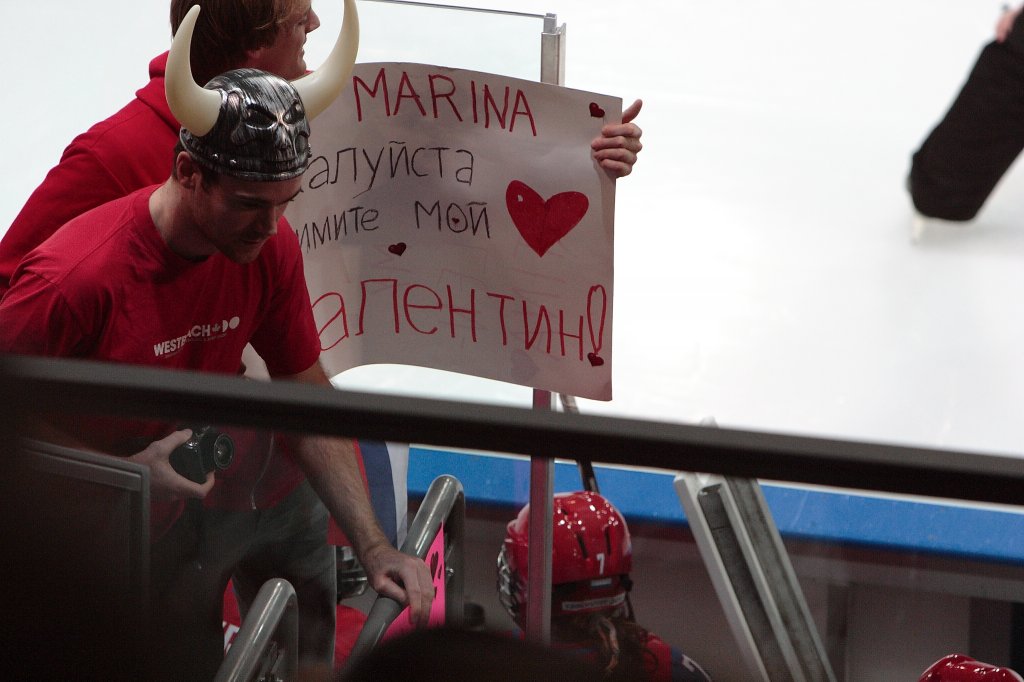 MARINA
алуйста
имите мой
алентин!
WESTBEACH
7